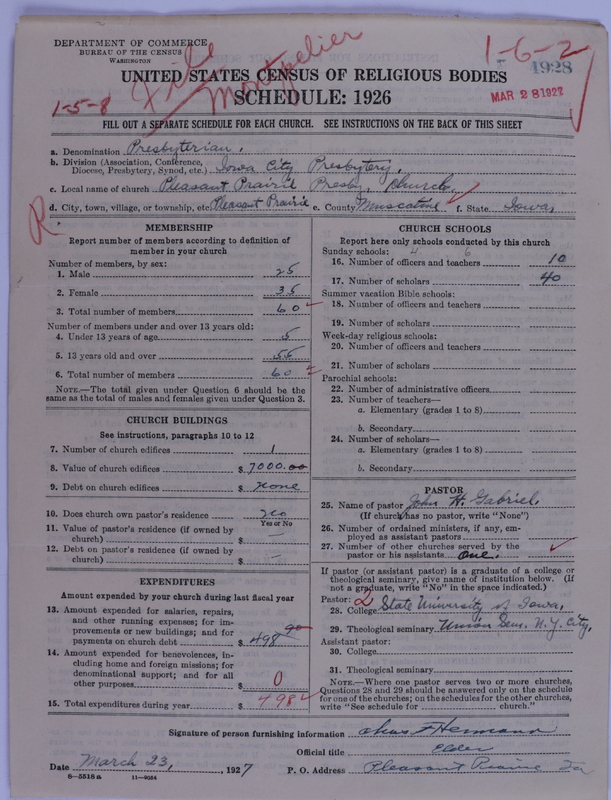 DEPARTMENT OF COMMERCE
BUREAU OF THE CENSUS
WASHINGTON
File
Montpelier
1-6-2
1928
MAR 28 1927
1-5-8
UNITED STATES CENSUS OF RELIGIOUS BODIES
SCHEDULE: 1926
FILL OUT A SEPARATE SCHEDULE FOR EACH CHURCH. SEE INSTRUCTIONS ON THE BACK OF THIS SHEET
a. Denomination Presbyterian.
b. Division (Association, Conference, Diocese, Presbytery, Synod, etc.) Iowa City Presbytery.
c. Local name of church Pleasant Prairie Presby. Church.
d. City, town, village, or township, etc. Pleasant Prairie e. County Muscatine f. State Iowa,
R
MEMBERSHIP
Report number of members according to definition of
member in your church
Number of members, by sex:
1. Male 25
2. Female 35
3. Total number of members 60
Number of members under and over 13 years old:
4. Under 13 years of age 5
5. 13 years old and over 55
6. Total number of members 60
NOTE.—The total given under Question 6 should be
same as the total of males and females given under Question 3.
CHURCH BUILDINGS
See instructions, paragraphs 10 to 12
7. Number of church edifices 1
8. Value of church edifices $ 7000.00
9. Debt on church edifices $ None
10. Does church own pastor's residence No
Yes or No
11. Value of pastor's residence (if owned by
church) $ —
12. Debt on pastor's residence (if owned by
church) $ —
EXPENDITURES
Amount expended by your church during last fiscal year
13. Amount expended for salaries, repairs,
and other running expenses; for im-
provements or new buildings; and for
payments on church debt $ 498
14. Amount expended for benevolences, in-
cluding home and foreign missions; for
denominational support; and for all
other purposes $ 0
15. Total expenditures during year $ 498
CHURCH SCHOOLS
Report here only schools conducted by this church
Sunday schools: 4 6
16. Number of officers and teachers 10
17. Number of scholars 40
Summer vacation Bible schools:
18. Number of officers and teachers
19. Number of scholars
Week-day religious schools:
20. Number of officers and teachers
21. Number of scholars
Parochial schools:
22. Number of administrative officers
23. Number of teachers—
a. Elementary (grades 1 to 8)
b. Secondary
24. Number of scholars—
a. Elementary (grades 1 to 8)
b. Secondary
PASTOR
25. Name of pastor John H. Gabriel
(If church has no pastor, write "None")
26. Number of ordained ministers, if any, em-
ployed as assistant pastors
27. Number of other churches served by the
pastor or his assistants One.
If pastor (or assistant pastor) is a graduate of a college or
theological seminary, give name of institution below. (If
not a graduate, write "No" in the space indicated.)
Pastor: 2
28. College State University of Iowa,
29. Theological seminary Union Sem. N.Y. City,
Assistant pastor:
30. College
31. Theological seminary
NOTE.—Where one pastor serves two or more churches,
Questions 28 and 29 should be answered only on the schedule
for one of the churches; on the schedules for the other churches,
write "See schedule for church."
Signature of person furnishing information Chas F Hermann
Official title Elder
Date March 23, 1927 P. O. Address Pleasant Prairie Ia
8-5518a 11-9054